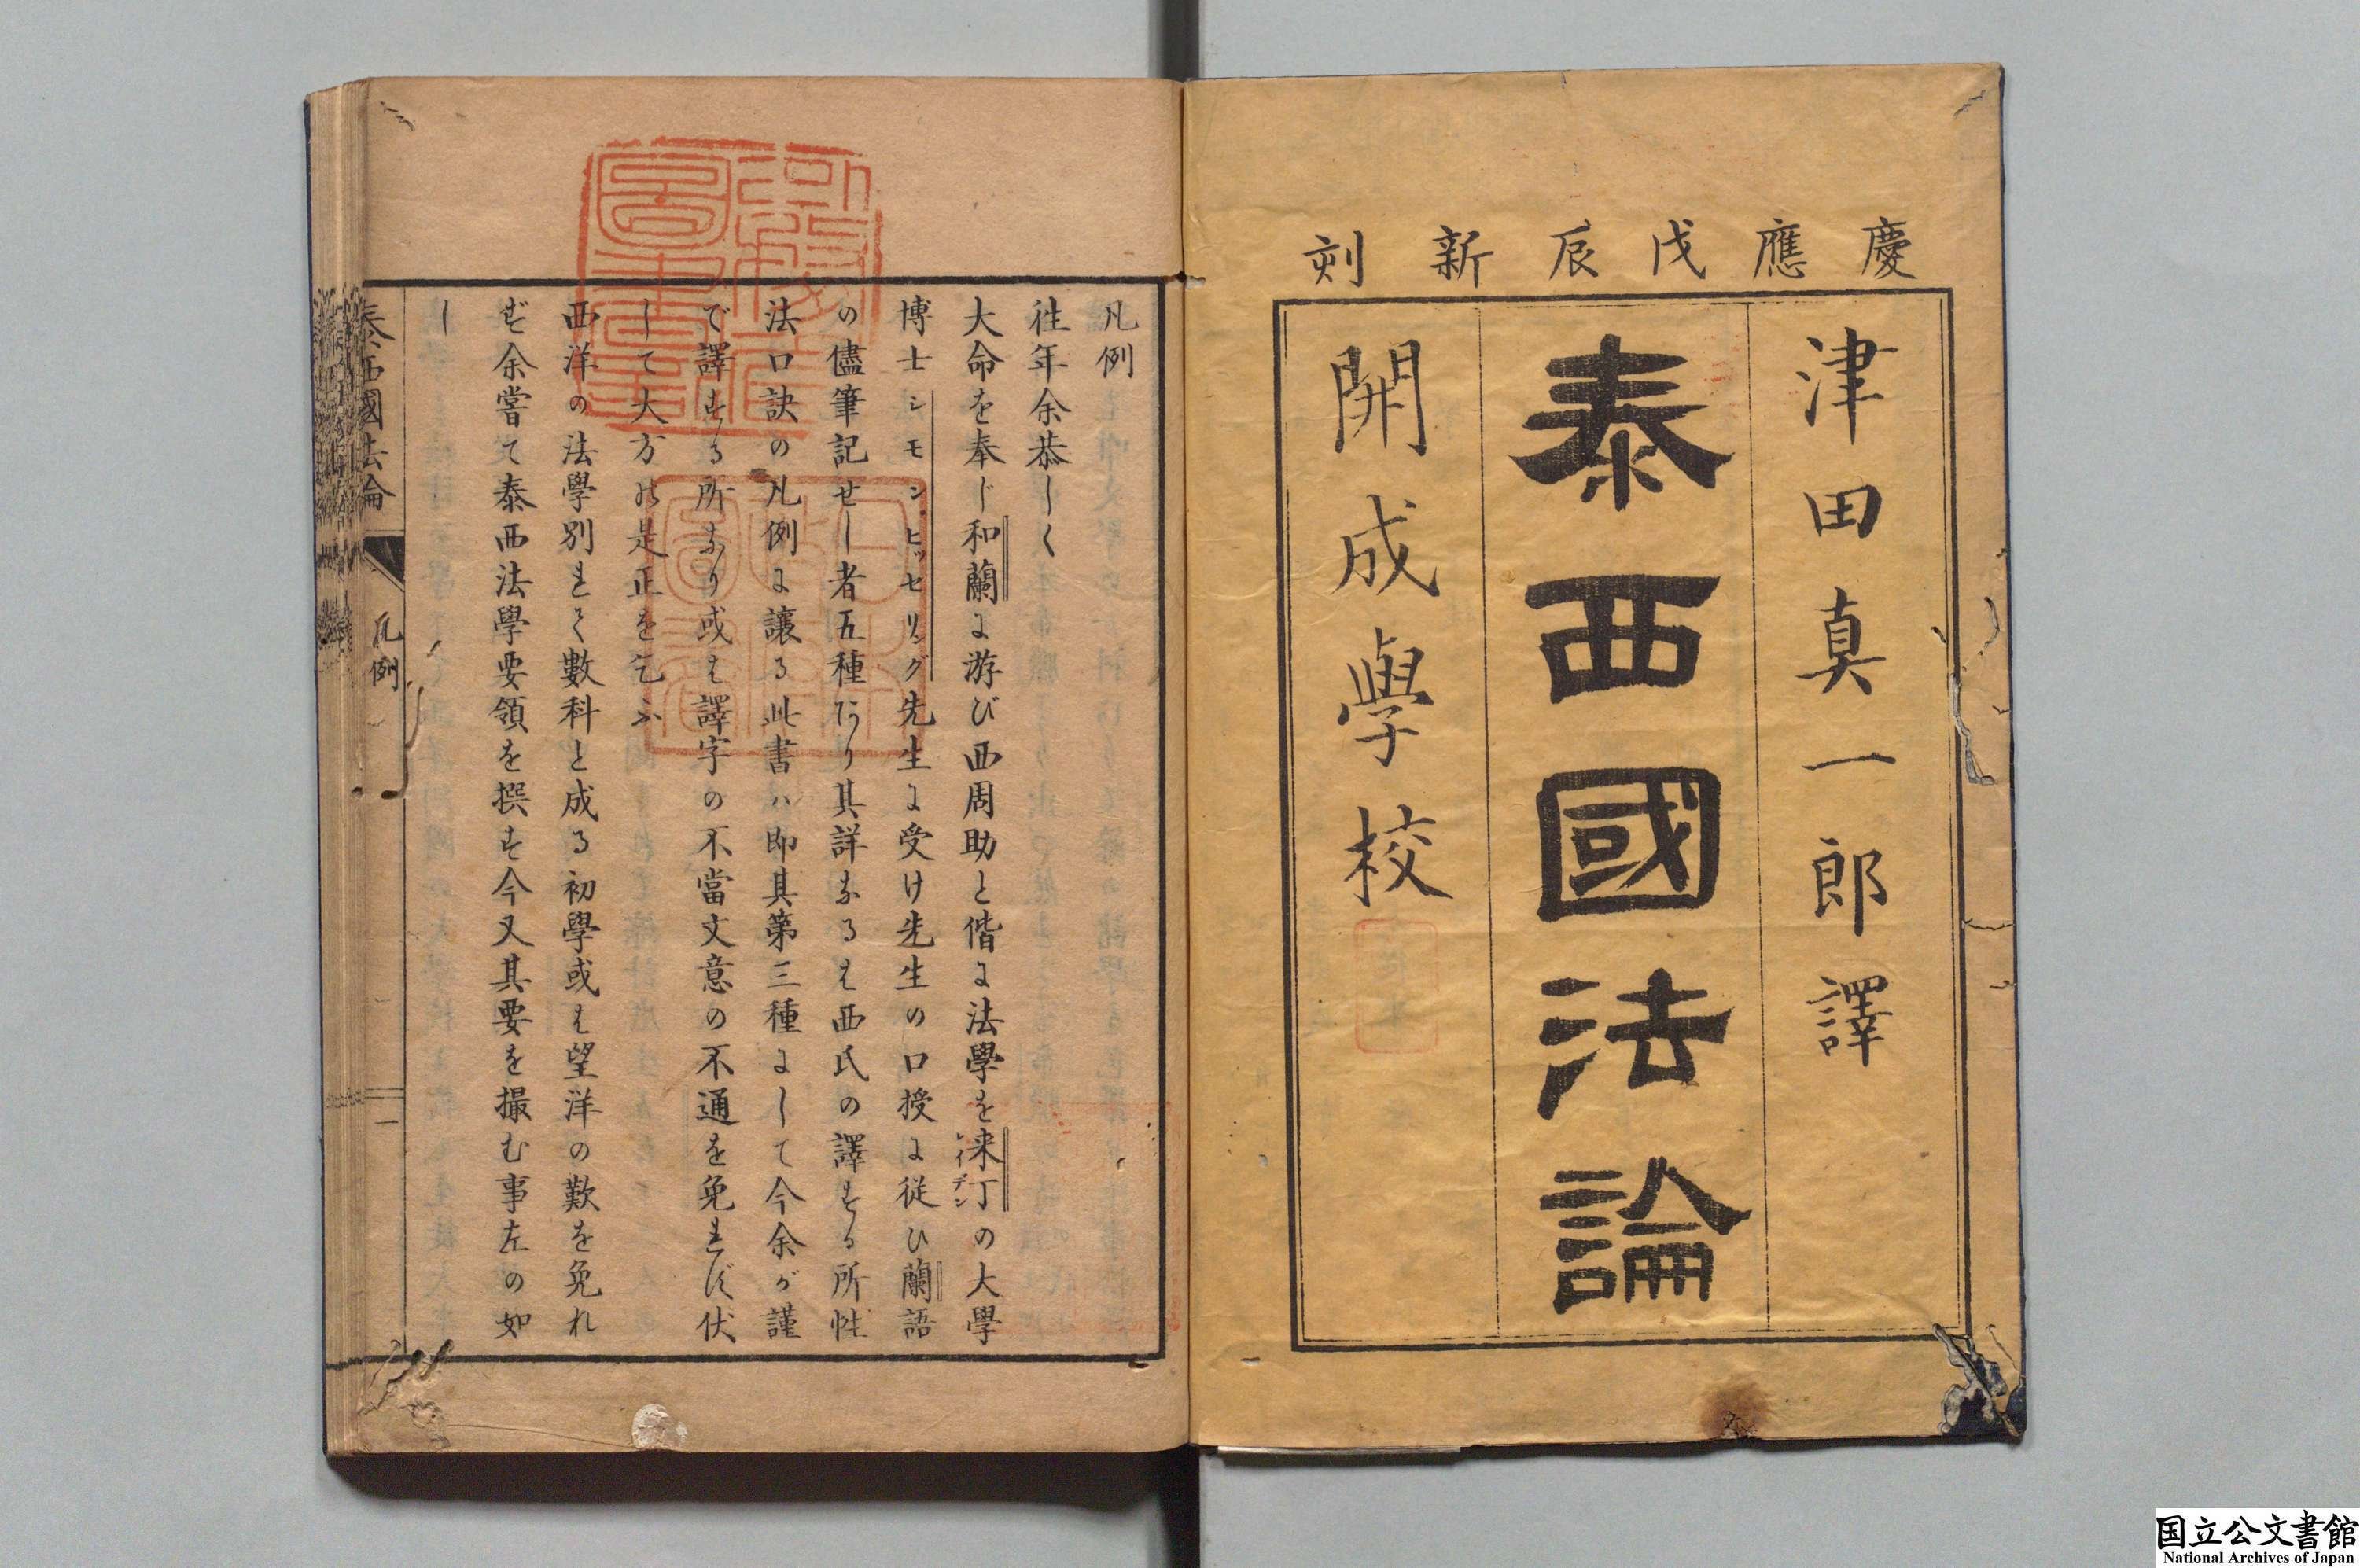 慶應戊辰新刻
津田真一郎譯
泰西國法論
開成學校
凡例
往年余恭しく
大命を奉じ和蘭に游び西周助と偕に法學を来丁の大學
レイデン
博士シモン・ヒッセリング先生に受け先生の口授に従ひ蘭語
の儘筆記せし者五種あり其詳なるは西氏の譯する所性
法口訣の凡例に讓る此書ハ即其第三種にして今余が謹
で譯する所なり或は譯字の不當文意の不通を免れず伏
して大方の是正を乞ふ
西洋の法學別れて數科と成る初學或は望洋の歎を免れ
ず余嘗て泰西法學要領を撰す今又其要を撮む事左の如
し
泰西國法論
凡例
一
国立公文書館
National Archives of Japan